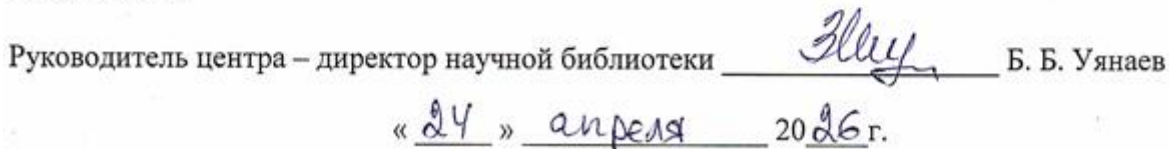 Руководитель центра – директор научной библиотеки ____________ Б. Б. Уянаев
« 24 » апреля 2026 г.